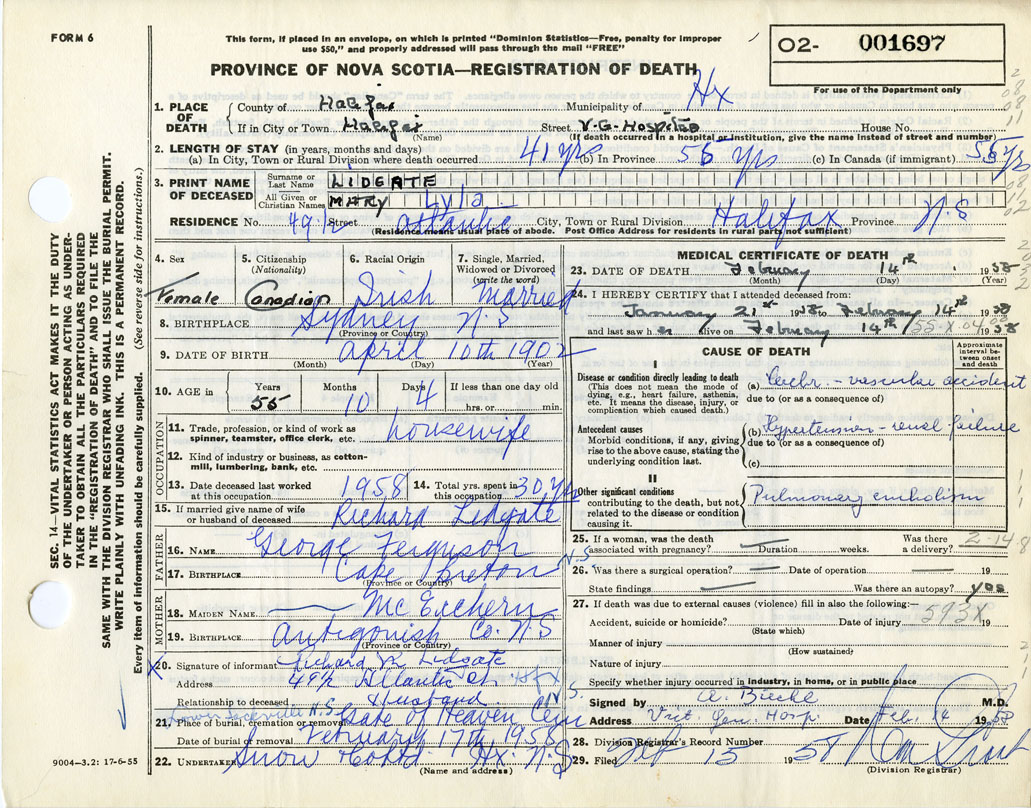 FORM 6
This form, if placed in an envelope, on which is printed "Dominion Statistics—Free, penalty for improper
use $50," and properly addressed will pass through the mail "FREE"
O2- 001697
For use of the Department only
PROVINCE OF NOVA SCOTIA—REGISTRATION OF DEATH
Hx
1. PLACE OF DEATH { County of Halifax Municipality of
If in City or Town Halifax Street V.G. Hospital House No.
(Name) (If death occurred in a hospital or institution, give the name instead of street and number)
2. LENGTH OF STAY (in years, months and days)
(a) In City, Town or Rural Division where death occurred 41 yrs (b) In Province 55 yrs (c) In Canada (if immigrant) 55 yrs
3. PRINT NAME OF DECEASED { Surname or Last Name LIDGATE
All Given or Christian Names MARY Lyla
RESIDENCE No. 49½ Street Atlantic City, Town or Rural Division Halifax Province N.S
(Residence means usual place of abode. Post Office Address for residents in rural parts not sufficient)
4. Sex Female
5. Citizenship (Nationality) Canadian
6. Racial Origin Irish
7. Single, Married, Widowed or Divorced (write the word) Married
8. BIRTHPLACE Sydney N.S
(Province or Country)
9. DATE OF BIRTH April 10th 1902
(Month) (Day) (Year)
10. AGE in { Years 55 Months 10 Days 4 If less than one day old
hrs. or min.
OCCUPATION
11. Trade, profession, or kind of work as spinner, teamster, office clerk, etc. housewife
12. Kind of industry or business, as cotton-mill, lumbering, bank, etc.
13. Date deceased last worked at this occupation 1958 14. Total yrs. spent in this occupation 30 yrs
15. If married give name of wife or husband of deceased Richard Lidgate
FATHER
16. NAME George Ferguson
17. BIRTHPLACE Cape Breton N.S
(Province or Country)
MOTHER
18. MAIDEN NAME McEachern
19. BIRTHPLACE Antigonish Co. N.S
(Province or Country)
X 20. Signature of informant Richard M. Lidgate
Address 49½ Atlantic St. Hfx
Relationship to deceased Husband N.S.
Lower Sackville N.S
21. Place of burial, cremation or removal Gate of Heaven Cem
Date of burial or removal February 17th 1958
22. UNDERTAKER Snow Hx. N.S
(Name and address)
9004—3.2: 17-6-55
SEC. 14—VITAL STATISTICS ACT MAKES IT THE DUTY
OF THE UNDERTAKER OR PERSON ACTING AS UNDER-
TAKER TO OBTAIN ALL THE PARTICULARS REQUIRED
IN THE "REGISTRATION OF DEATH" AND TO FILE THE
SAME WITH THE DIVISION REGISTRAR WHO SHALL ISSUE THE BURIAL PERMIT.
WRITE PLAINLY WITH UNFADING INK. THIS IS A PERMANENT RECORD.
Every item of information should be carefully supplied. (See reverse side for instructions.)
MEDICAL CERTIFICATE OF DEATH
23. DATE OF DEATH February 14th 1958
(Month) (Day) (Year)
24. I HEREBY CERTIFY that I attended deceased from:
January 21st 1958 to February 14th 1958
and last saw h er alive on February 14th 1958
CAUSE OF DEATH
Approximate interval between onset and death
I
Disease or condition directly leading to death
(This does not mean the mode of dying, e.g., heart failure, asthenia, etc. It means the disease, injury, or complication which caused death.)
(a) Cerebr.-vascular accident
due to (or as a consequence of)
Antecedent causes
Morbid conditions, if any, giving rise to the above cause, stating the underlying condition last.
(b) Hypertension - renal failure
due to (or as a consequence of)
(c)
II
Other significant conditions contributing to the death, but not related to the disease or condition causing it.
Pulmonary embolism
25. If a woman, was the death associated with pregnancy? — Duration weeks. Was there a delivery?
2-14-8
26. Was there a surgical operation? — Date of operation — 19
State findings — Was there an autopsy? yes
27. If death was due to external causes (violence) fill in also the following:—
593X
Accident, suicide or homicide? Date of injury 19
(State which)
Manner of injury
(How sustained)
Nature of injury
Specify whether injury occurred in industry, in home, or in public place
Signed by M.D.
Address Vict. Gen. Hosp. Date Feb. 14 1958
28. Division Registrar's Record Number
29. Filed Feb 15 1958
(Division Registrar)